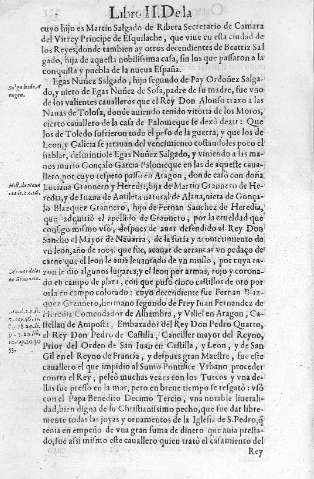 Libro II. De la
cuyo hijo es Martin Salgado de Ribera Secretario de Camara
del Virrey Principe de Esquilache, que vive en esta ciudad de
los Reyes, donde tambien ay otros decendientes de Beatriz Sal
gado, hija de aquesta nobilissima casa, sin los que passaron a la
conquista y puebla de la nueva España.
Egas Nuñez Salgado, hijo segundo de Pay Ordoñez Salga-
do, y nieto de Egas Nuñez de Sosa, padre de su madre, fue vno
de los valientes cavalleros que el Rey Don Alonso traxo a las
Nauas de Tolosa, donde auiendo tenido vitoria de los Moros,
cierto cavallero de la casa de Palomeque se dexó dezir: Que
los de Toledo sufrieron todo el peso de la guerra, y que los de
Leon, y Galicia se jatauan del vencimiento costandoles poco el
hablar, desmintiole Egas Nuñez Salgado, y viniendo a las ma-
nos murio Gonçalo Garcia Palomeque en las de aqueste cauall-
lero, por cuyo respeto passò en Aragon, donde casò con doña
Luciana Grannero y Heredia, hija de Martin Grannero de He-
redia, y de Juana de Antileta natural de Alaua, nieta de Gonça-
lo Blazquez Grannero, hijo de Fernan Sanchez de Heredia,
que adquirió el apellido de Grannero, por la crueldad que
consigo mismo vsò, despues de auer defendido al Rey Don
Sancho el Mayor de Nauarra, de la furia y atrevimiento de
vn leon, año de
carne que el leon le auia levantado de vn muslo, por cuya ra-
zon le dio algunos lugares, y el leon por armas, rojo y corona-
do en campo de plata, con que puso cinco castillos de oro por
orla en campo colorado: cuyo decendiente fue Fernan Blaz-
quez Grannero, hermano segundo de Frey Juan Fernandez de
Heredia Comendador de Alhambra, y Villel en Aragon, Cas-
tellan de Amposta, Embaxador del Rey Don Pedro Quarto,
al Rey Don Pedro de Castilla, Canciller mayor del Reyno,
Prior del Orden de San Juan en Castilla, y Leon, y de San
Gil en el Reyno de Francia, y despues gran Maestre, fue este
cavallero el que impidio al Sumo Pontifice Vrbano proceder
contra el Rey, peleò muchas vezes con los Turcos y vna de-
llas fue presso en la mar, pero en breve tiempo se resgatò: vsò
con el Papa Benedito Decimo Tercio, vna notable liberali-
dad, bien digna de su Christianissimo pecho, que fue dar libre-
mente todas las joyas y ornamentos de la Iglesia de S. Pedro, q̃
tenia en empeño de vna gran suma de dinero que auia presta-
do, fue assi mismo este cavallero quien tratò el casamiento del
Rey